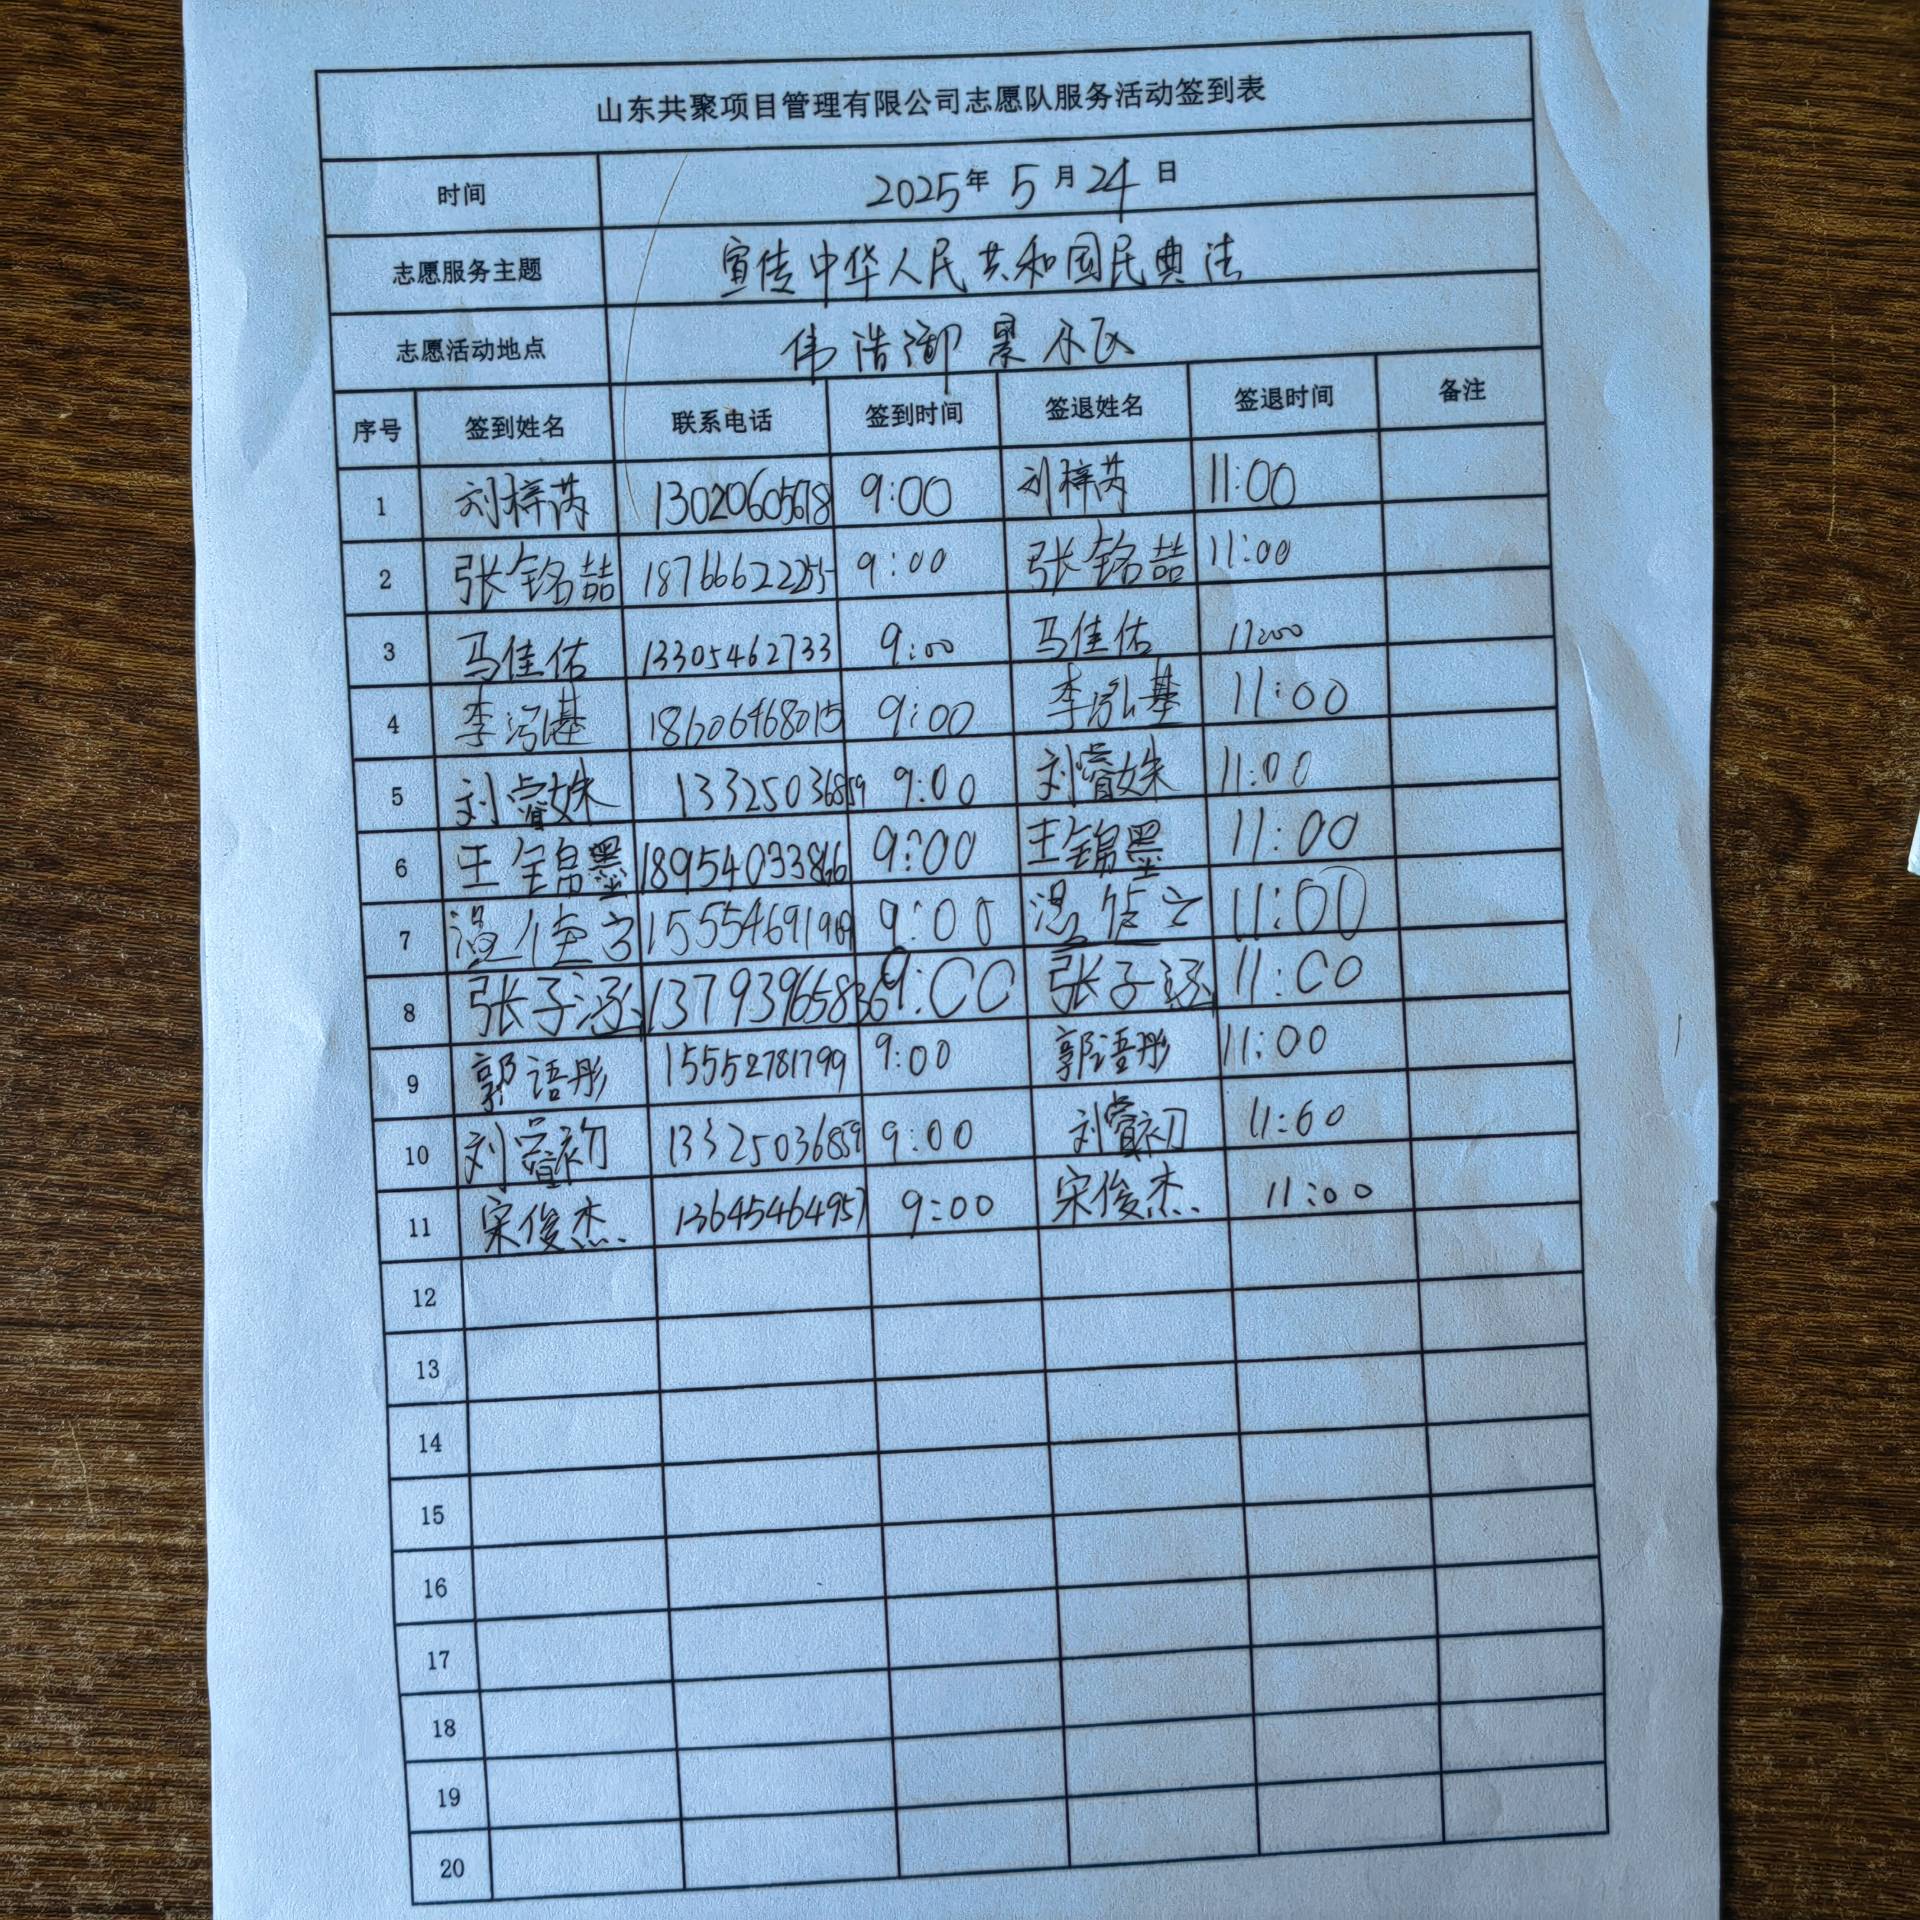 山东共聚项目管理有限公司志愿队服务活动签到表
时间 2025年5月24日
志愿服务主题 宣传中华人民共和国民典法
志愿活动地点 伟浩御景小区
序号 签到姓名 联系电话 签到时间 签退姓名 签退时间 备注
1 刘梓芮 13020605678 9:00 刘梓芮 11:00
2 张铭喆 18766622255 9:00 张铭喆 11:00
3 马佳佑 13305462733 9:00 马佳佑 11:00
4 李泓基 18606468015 9:00 李泓基 11:00
5 刘睿姝 13325036859 9:00 刘睿姝 11:00
6 王锦墨 18954033866 9:00 王锦墨 11:00
7 温 9:00 温 11:00
8 张子涵 13793965836 9:00 张子涵 11:00
9 郭语彤 15552781799 9:00 郭语彤 11:00
10 刘睿初 13325036859 9:00 刘睿初 11:60
11 宋俊杰 13645464957 9:00 宋俊杰 11:00
12
13
14
15
16
17
18
19
20